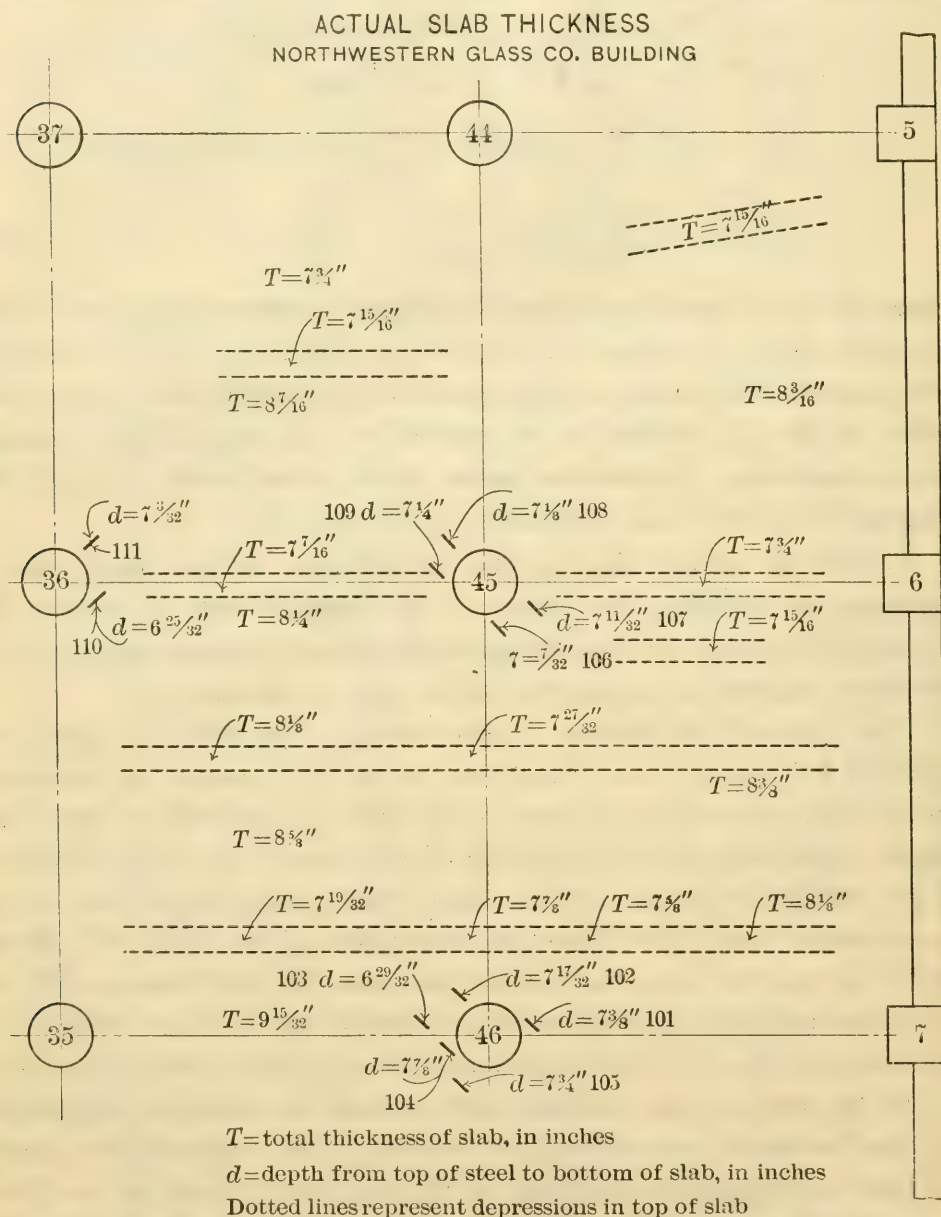 ACTUAL SLAB THICKNESS
NORTHWESTERN GLASS CO. BUILDING
37
44
5
T=7 15/16"
T=7 3/4"
T=7 15/16"
T=8 7/16"
T=8 3/16"
d=7 3/32"
111
109 d=7 1/4"
d=7 1/8" 108
T=7 7/16"
T=7 3/4"
36
45
6
d=6 25/32"
110
T=8 1/4"
d=7 11/32" 107
T=7 15/16"
7=7/32" 106
T=8 1/8"
T=7 27/32"
T=8 3/8"
T=8 5/8"
T=7 19/32"
T=7 7/8"
T=7 5/8"
T=8 1/8"
103 d=6 29/32"
d=7 17/32" 102
35
T=9 15/32"
46
d=7 3/8" 101
7
d=7 7/8"
104
d=7 3/4" 105
T=total thickness of slab, in inches
d=depth from top of steel to bottom of slab, in inches
Dotted lines represent depressions in top of slab